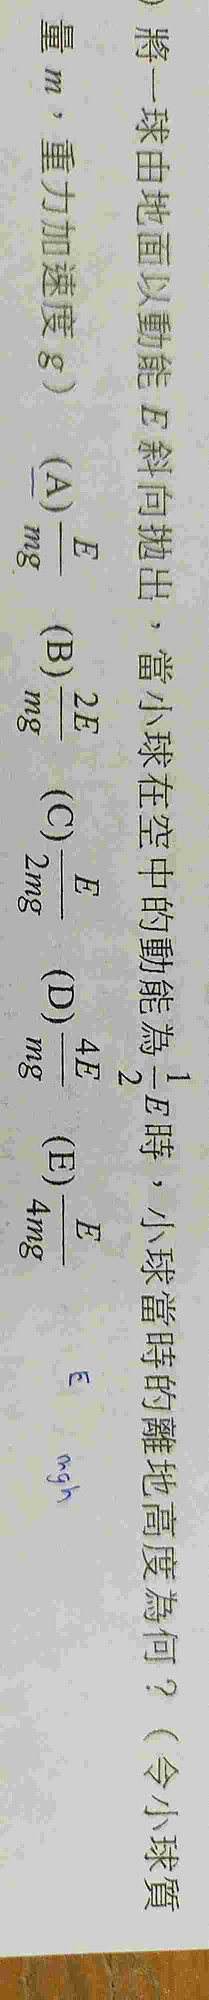 ) 將一球由地面以動能 E 斜向拋出，當小球在空中的動能為 1/2 E 時，小球當時的離地高度為何？（令小球質
量 m，重力加速度 g） (A) E/mg (B) 2E/mg (C) E/2mg (D) 4E/mg (E) E/4mg
E mgh